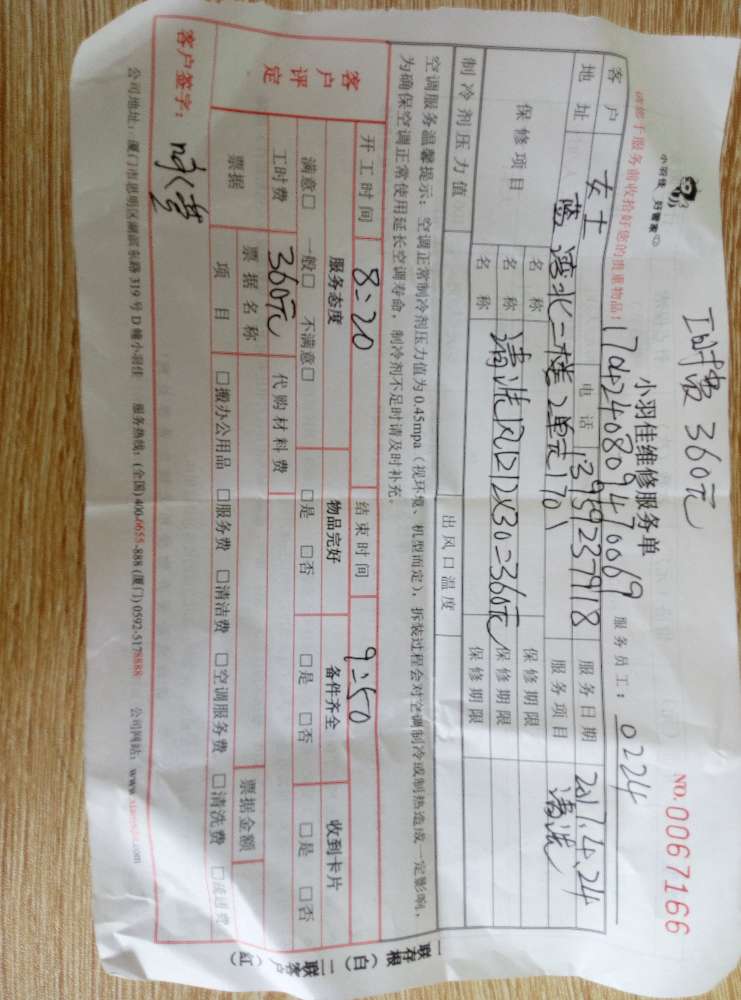 工时费 360元
小羽佳 好管家
小羽佳维修服务单
NO.0067166
请您于服务前收拾好您的贵重物品!
1704240809470069
服务员工: 0224
客户 女士 电话 13959237918 服务日期 2017.4.24
地址 蓝湾北二楼2单元1701 服务项目 清洗
保修项目 名称 保修期限
名称 清洗风口12×30=360元 保修期限
名称 保修期限
制冷剂压力值 出风口温度
空调服务温馨提示:空调正常制冷剂压力值为0.45mpa(视环境、机型而定),拆装过程会对空调制冷或制热造成一定影响,
为确保空调正常使用延长空调寿命,制冷剂不足时请及时补充。
开工时间 8:20 结束时间 9:50
客户评定 服务态度 物品完好 备件齐全 收到卡片
满意□ 一般□ 不满意□ □是 □否 □是 □否 □是 □否
工时费 360元 代购材料费
票据 票据名称 票据金额
项目 □搬办公用品 □服务费 □清洁费 □空调服务费 □清洗费 □
客户签字:
公司地址:厦门市思明区湖滨东路319号D幢小羽佳 服务热线:(全国)400-6655-888 (厦门)0592-5178888 公司网站:
一联存根(白) 二联客户(红)